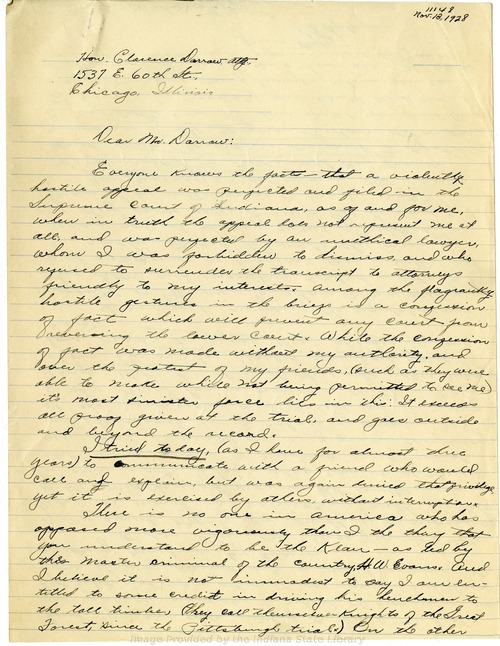 11148
Nov. 18, 1928
Hon. Clarence Darrow, Atty.
1537 E. 60th St.,
Chicago, Illinois
Dear Mr. Darrow:
Everyone knows the facts that a violently
hostile appeal was perfected and filed in the
Supreme Court of Indiana, as of and for me,
when in truth the appeal does not represent me at
all, and was perfected by an unethical lawyer,
whom I was forbidden to dismiss, and who
refused to surrender the transcript to attorneys
friendly to my interests. Among the flagrantly
hostile gestures in the briefs is a confession
of fact which will prevent any Court from
reversing the lower Court. While the confession
of fact was made without my authority, and
over the protest of my friends, (such as they were
able to make while not being permitted to see me)
it's most sinister force lies in this: It exceeds
all proof given at the trial, and goes outside
and beyond the record.
I tried to-day, (as I have for almost three
years) to communicate with a friend who would
call and explain, but was again denied that privilege,
yet it is exercised by others without interruption.
There is no one in America who has
opposed more vigorously than I the thing that
you understand to be the Klan — as led by
this master criminal of the country, H. W. Evans. And
I believe it is not immodest to say I am en-
titled to some credit in driving his henchmen to
the tall timber (They call themselves Knights of the Great
Forest, since the Pittsburgh trial.) On the other
Image Provided by the Indiana State Library